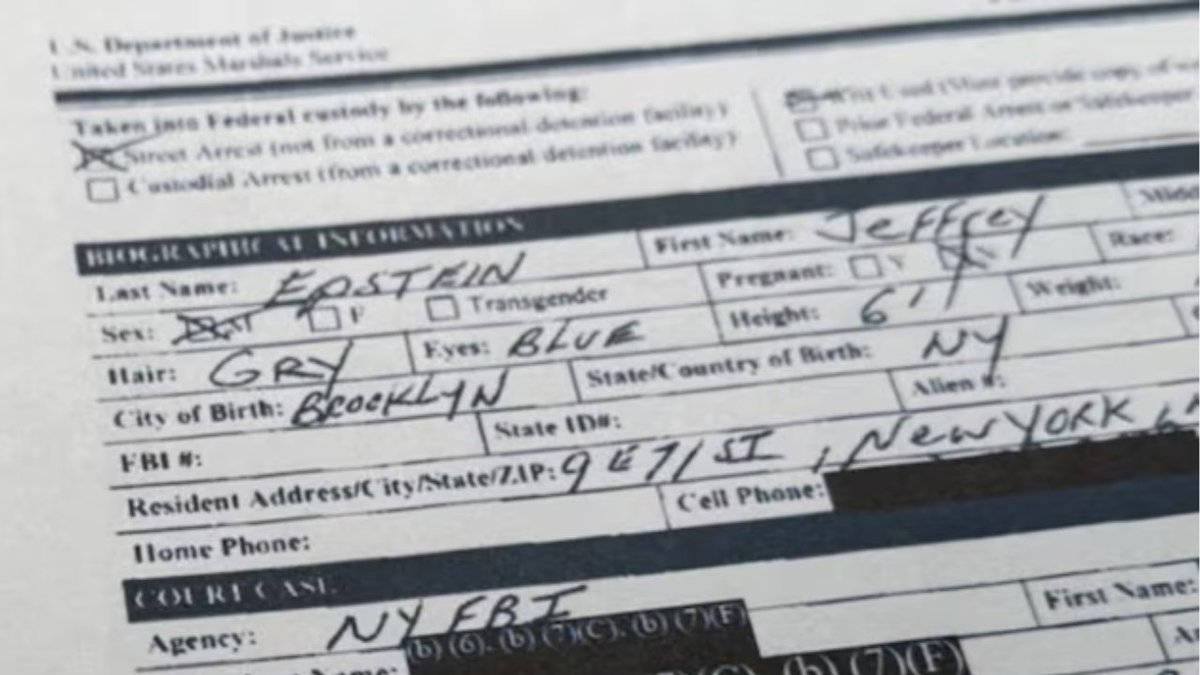 U.S. Department of Justice
United States Marshals Service
Taken into Federal custody by the following:
Street Arrest (not from a correctional detention facility)
Custodial Arrest (from a correctional detention facility)
(Must provide copy of
Prior Federal Arrest or Safekeeper
Safekeeper Location:
BIOGRAPHICAL INFORMATION
Last Name: EPSTEIN First Name: Jeffrey
Sex: M F Transgender Pregnant: Y Race:
Hair: GRY Eyes: BLUE Height: 6'1 Weight:
City of Birth: BROOKLYN State/Country of Birth: NY
FBI #: State ID#: Alien #:
Resident Address/City/State/ZIP: 9 E 71 ST, New YORK
Home Phone: Cell Phone:
COURT CASE
Agency: NY FBI
(b) (6), (b) (7)(C), (b) (7)(F) First Name:
Name: (C), (b) (7)(F)